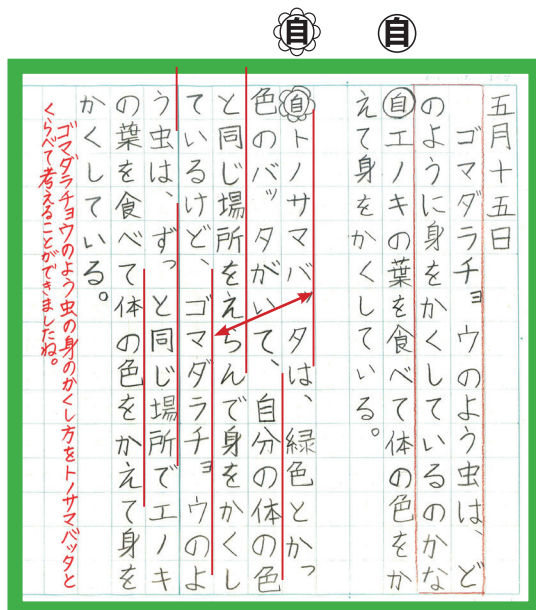 自
自
五月十五日
ゴマダラチョウのよう虫は、ど
のように身をかくしているのかな
自エノキの葉を食べて体の色をか
えて身をかくしている。
自トノサマバッタは、緑色とかっ
色のバッタがいて、自分の体の色
と同じ場所をえらんで身をかくし
ているけど、ゴマダラチョウのよ
う虫は、ずっと同じ場所でエノキ
の葉を食べて体の色をかえて身を
かくしている。
ゴマダラチョウのよう虫の身のかくし方をトノサマバッタと
くらべて考えることができましたね。